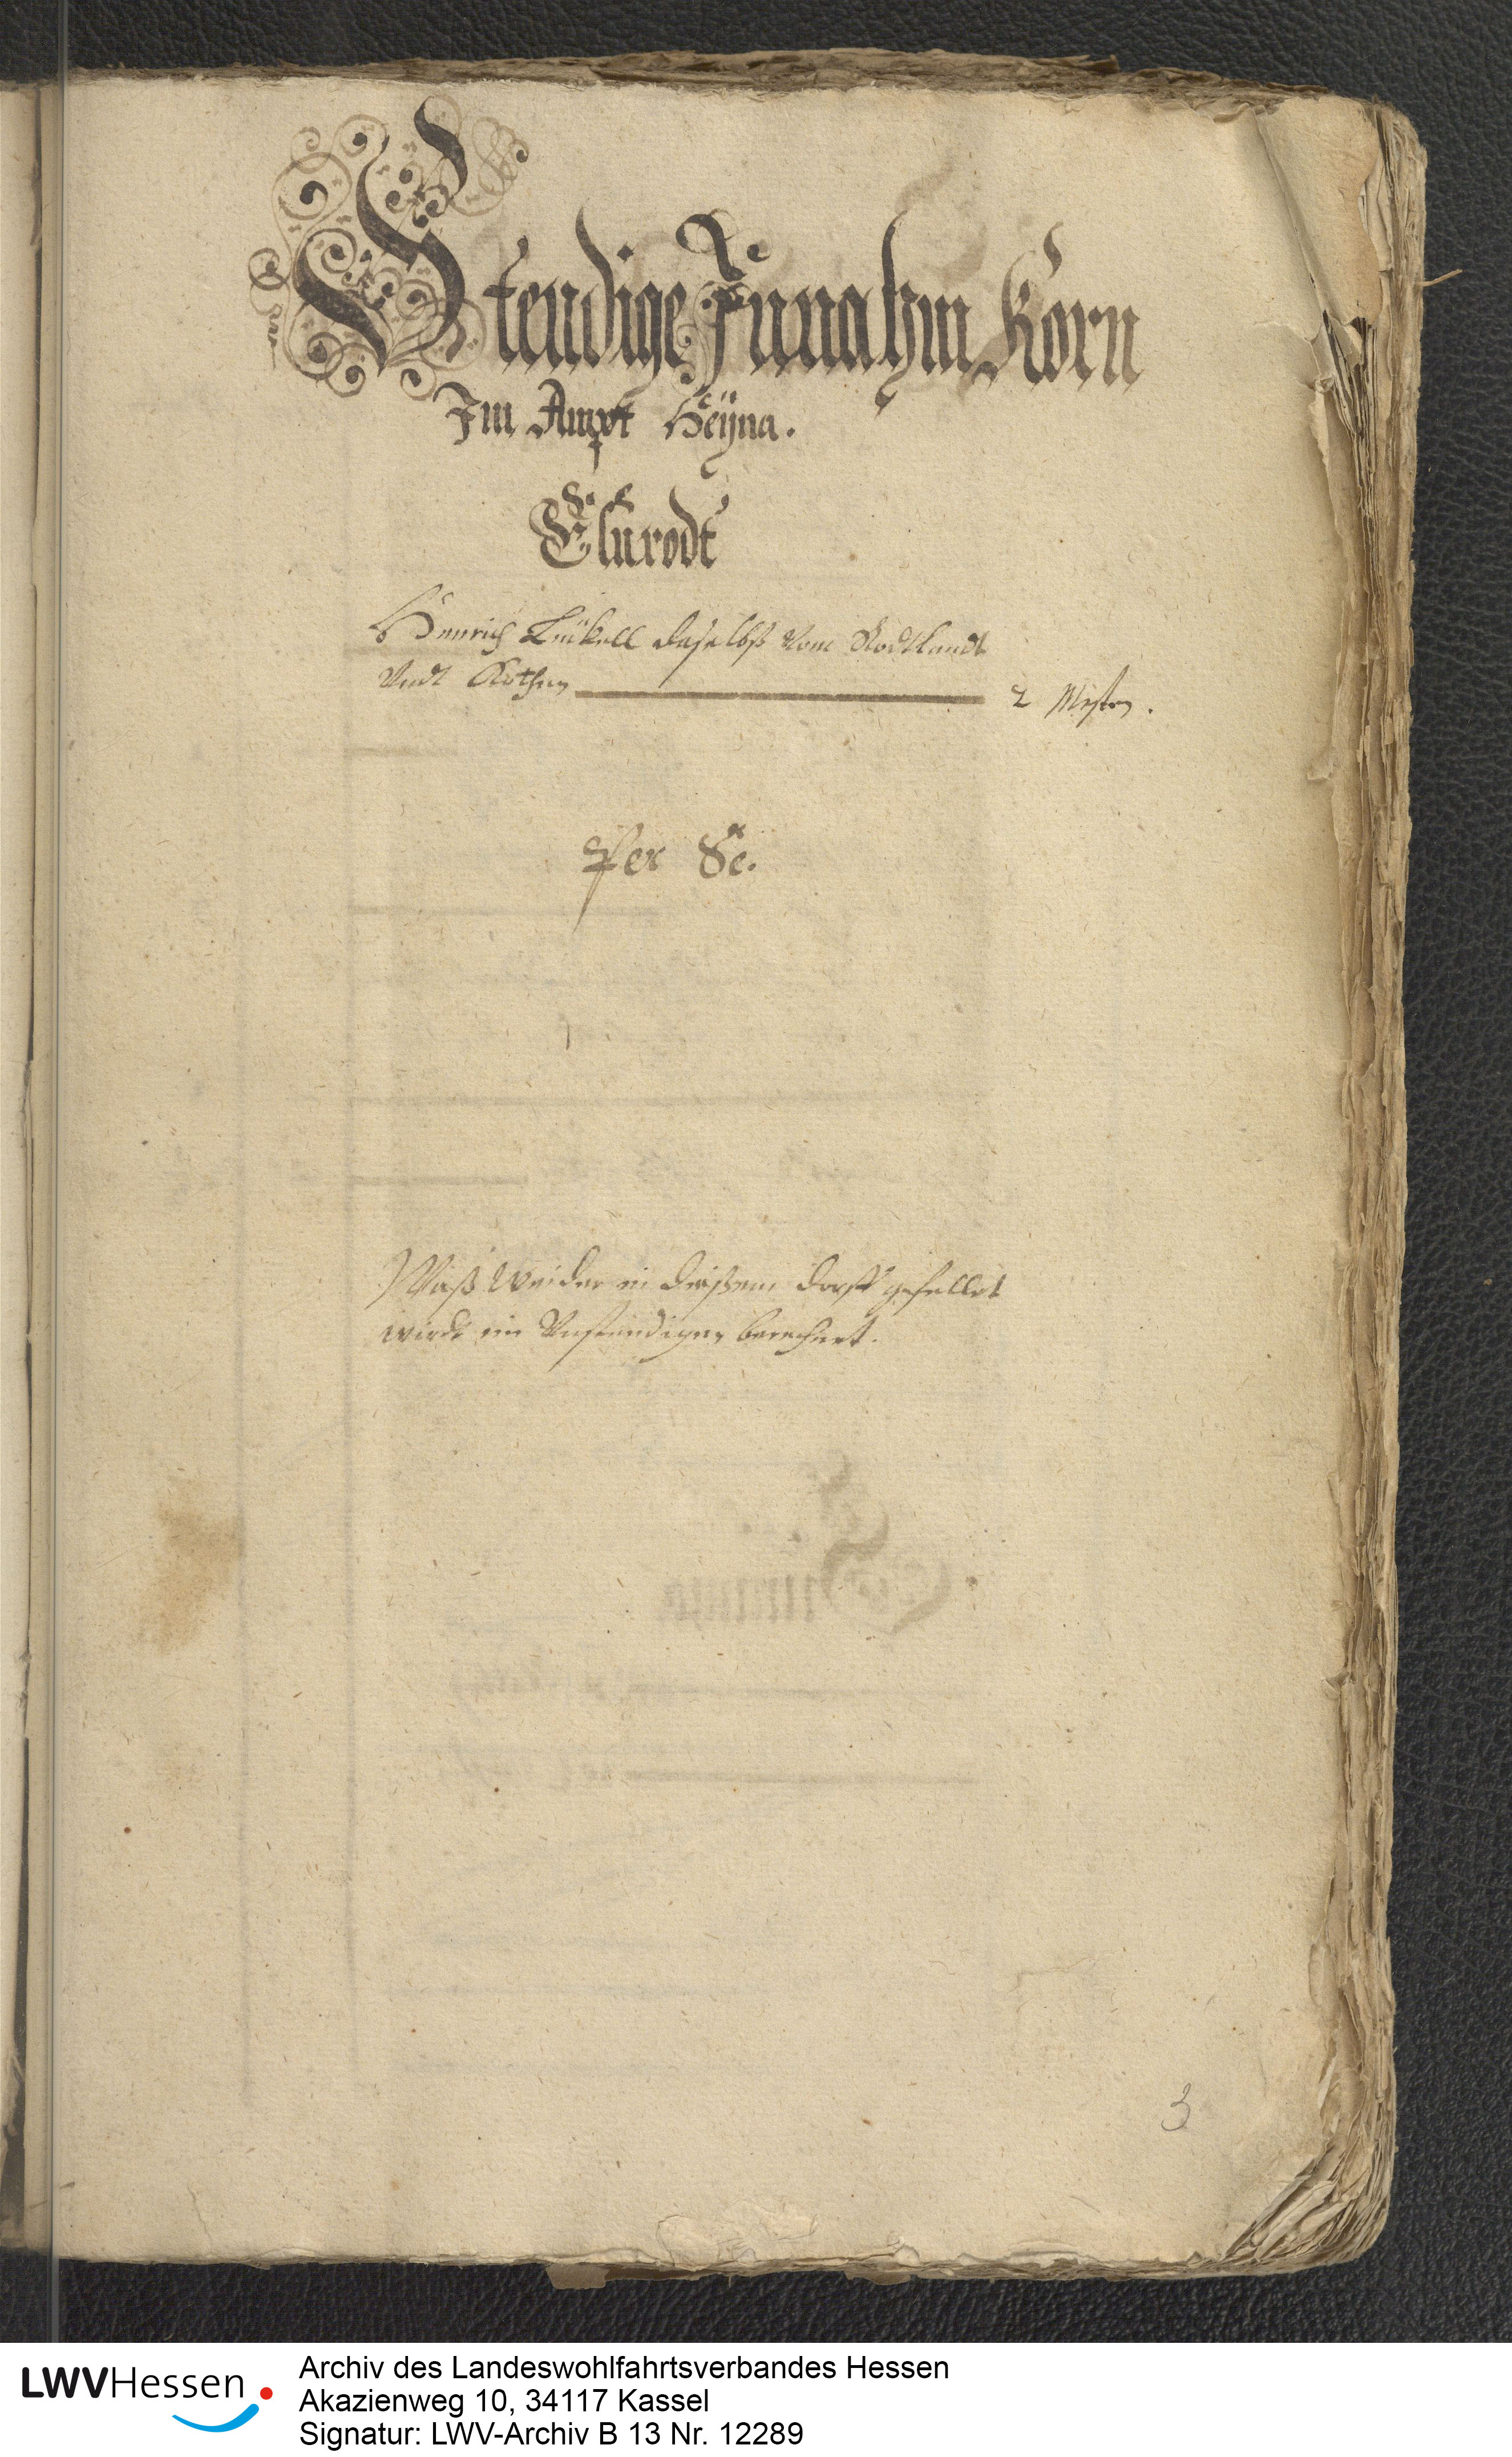 Stendige Innahm Korn
Im Ampt Heÿna.
Elnrodt
Henrich Lückell daselbst vom Rodtlandt
Undt Rothen 2 Mesten.
Per Se.
Waß weider in dießem dorff gefellet
wirdt im Unstendigen berechnet.
Summa
3
LWVHessen
Archiv des Landeswohlfahrtsverbandes Hessen
Akazienweg 10, 34117 Kassel
Signatur: LWV-Archiv B 13 Nr. 12289